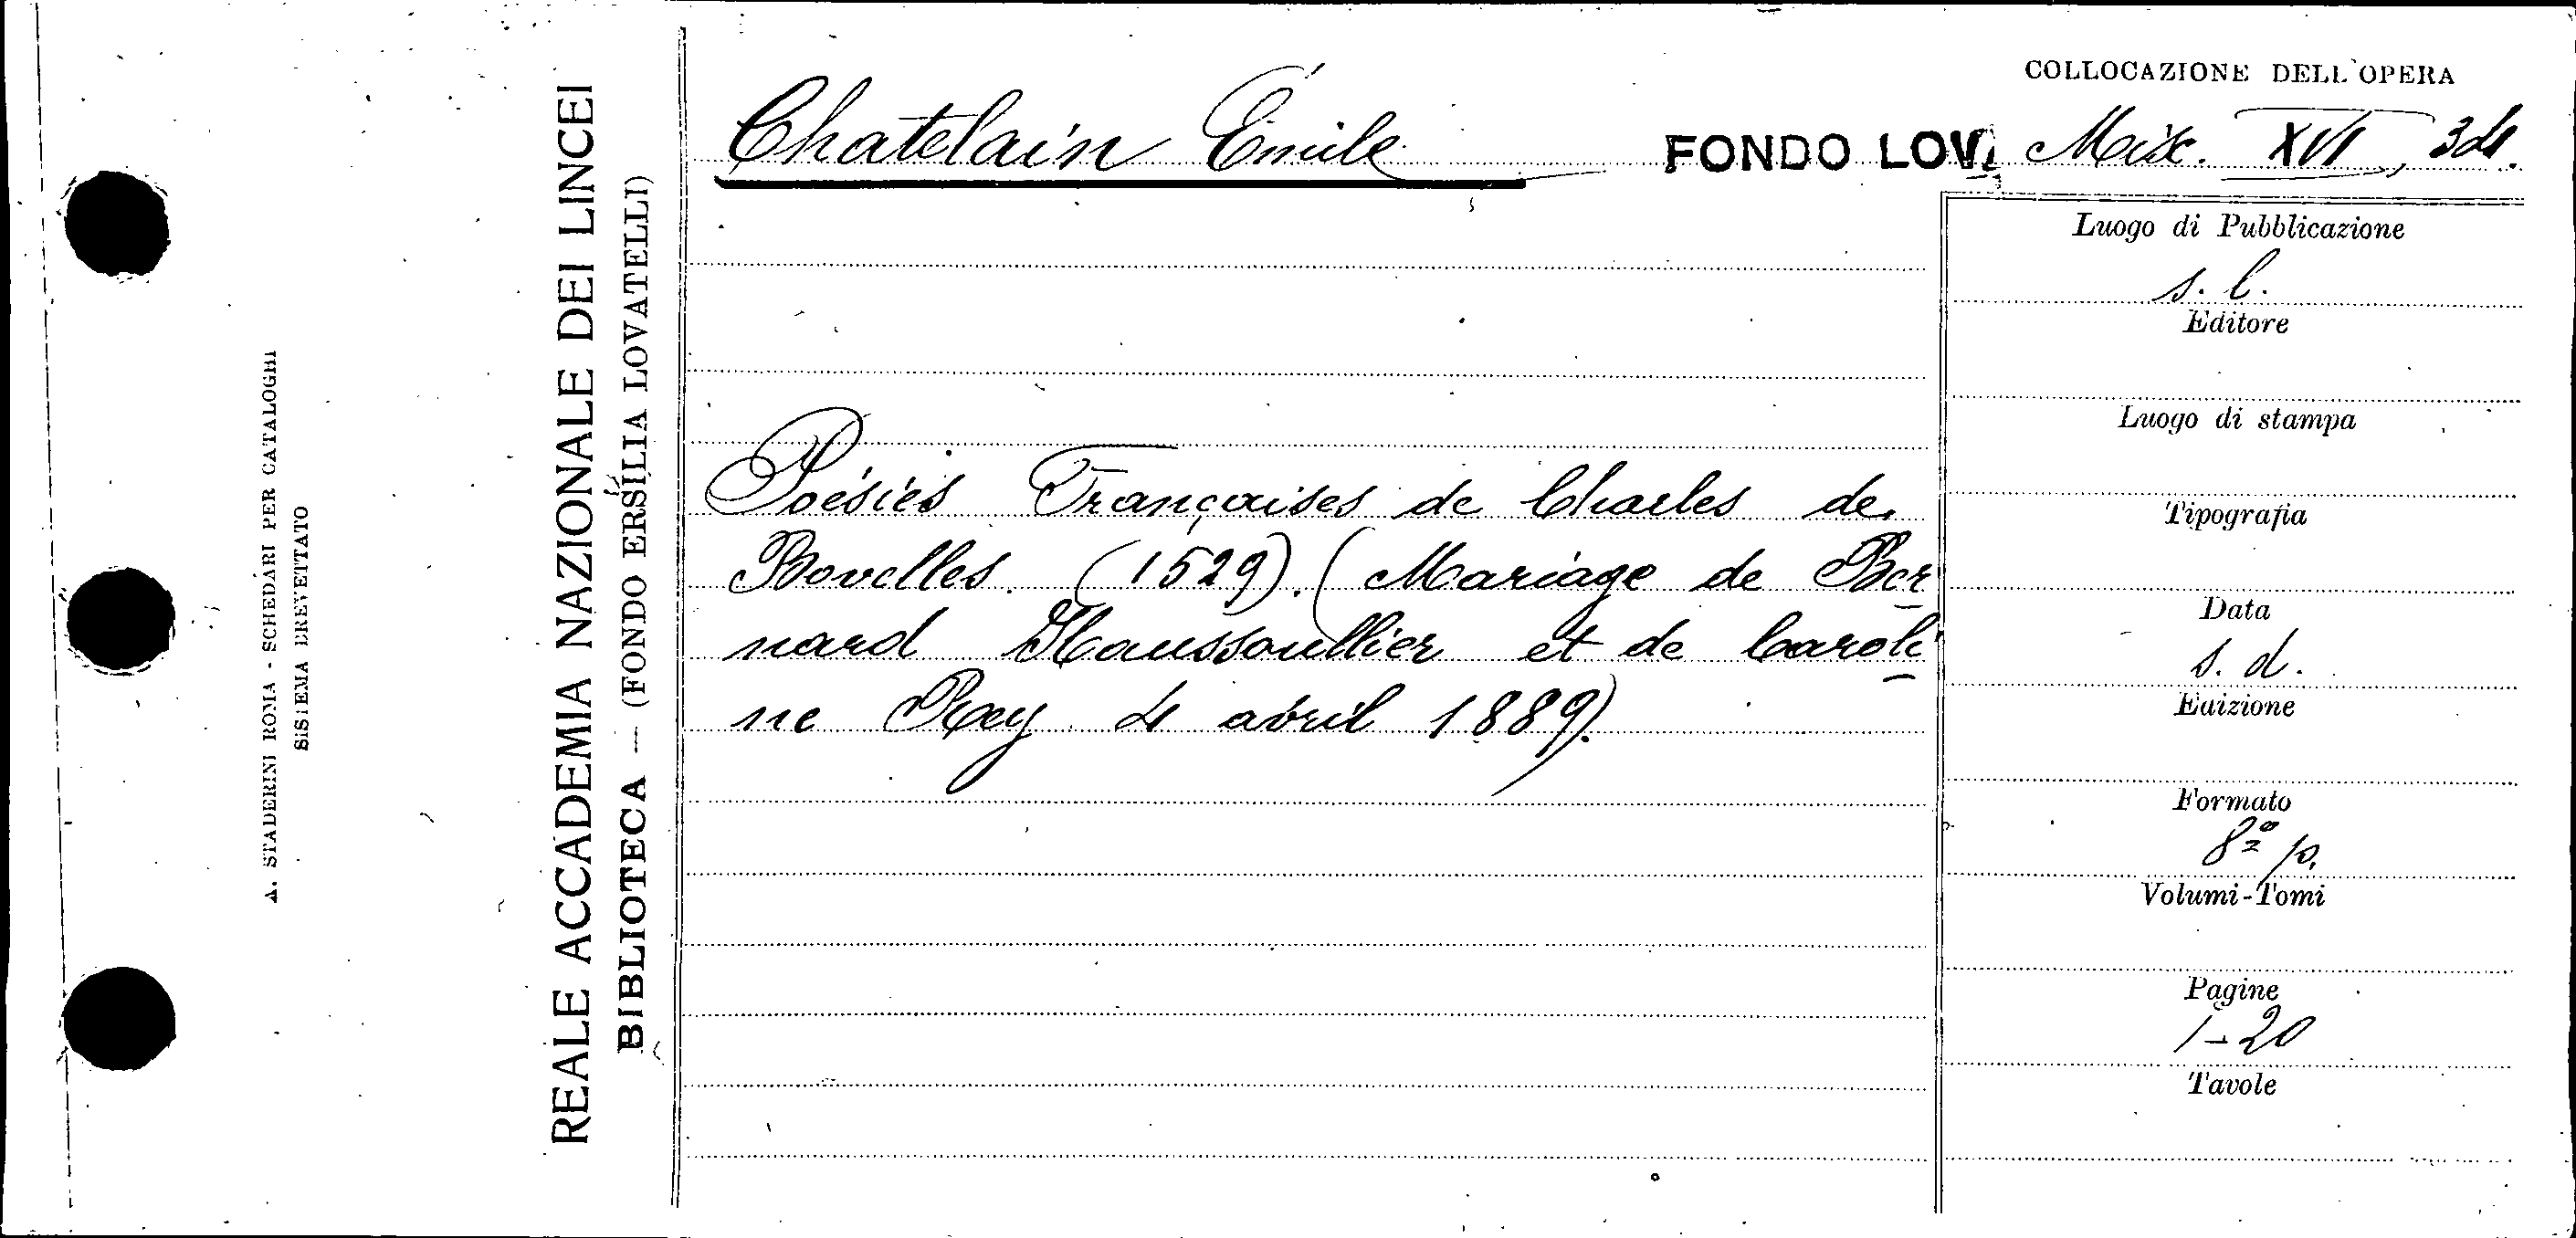 COLLOCAZIONE DELL'OPERA
Chatelain Émile
FONDO LOV. Misc. XVI, 34.
Poésies Françaises de Charles de
Bovelles. (1529). (Mariage de Ber
nard Haussoullier et de Caroli
ne Rey 4 avril 1889).
Luogo di Pubblicazione
s. l.
Editore
Luogo di stampa
Tipografia
Data
s. d.
Edizione
Formato
8º p.
Volumi-Tomi
Pagine
1-20
Tavole
REALE ACCADEMIA NAZIONALE DEI LINCEI
BIBLIOTECA — (FONDO ERSILIA LOVATELLI)
A. STADERINI ROMA - SCHEDARI PER CATALOGHI
SISTEMA BREVETTATO